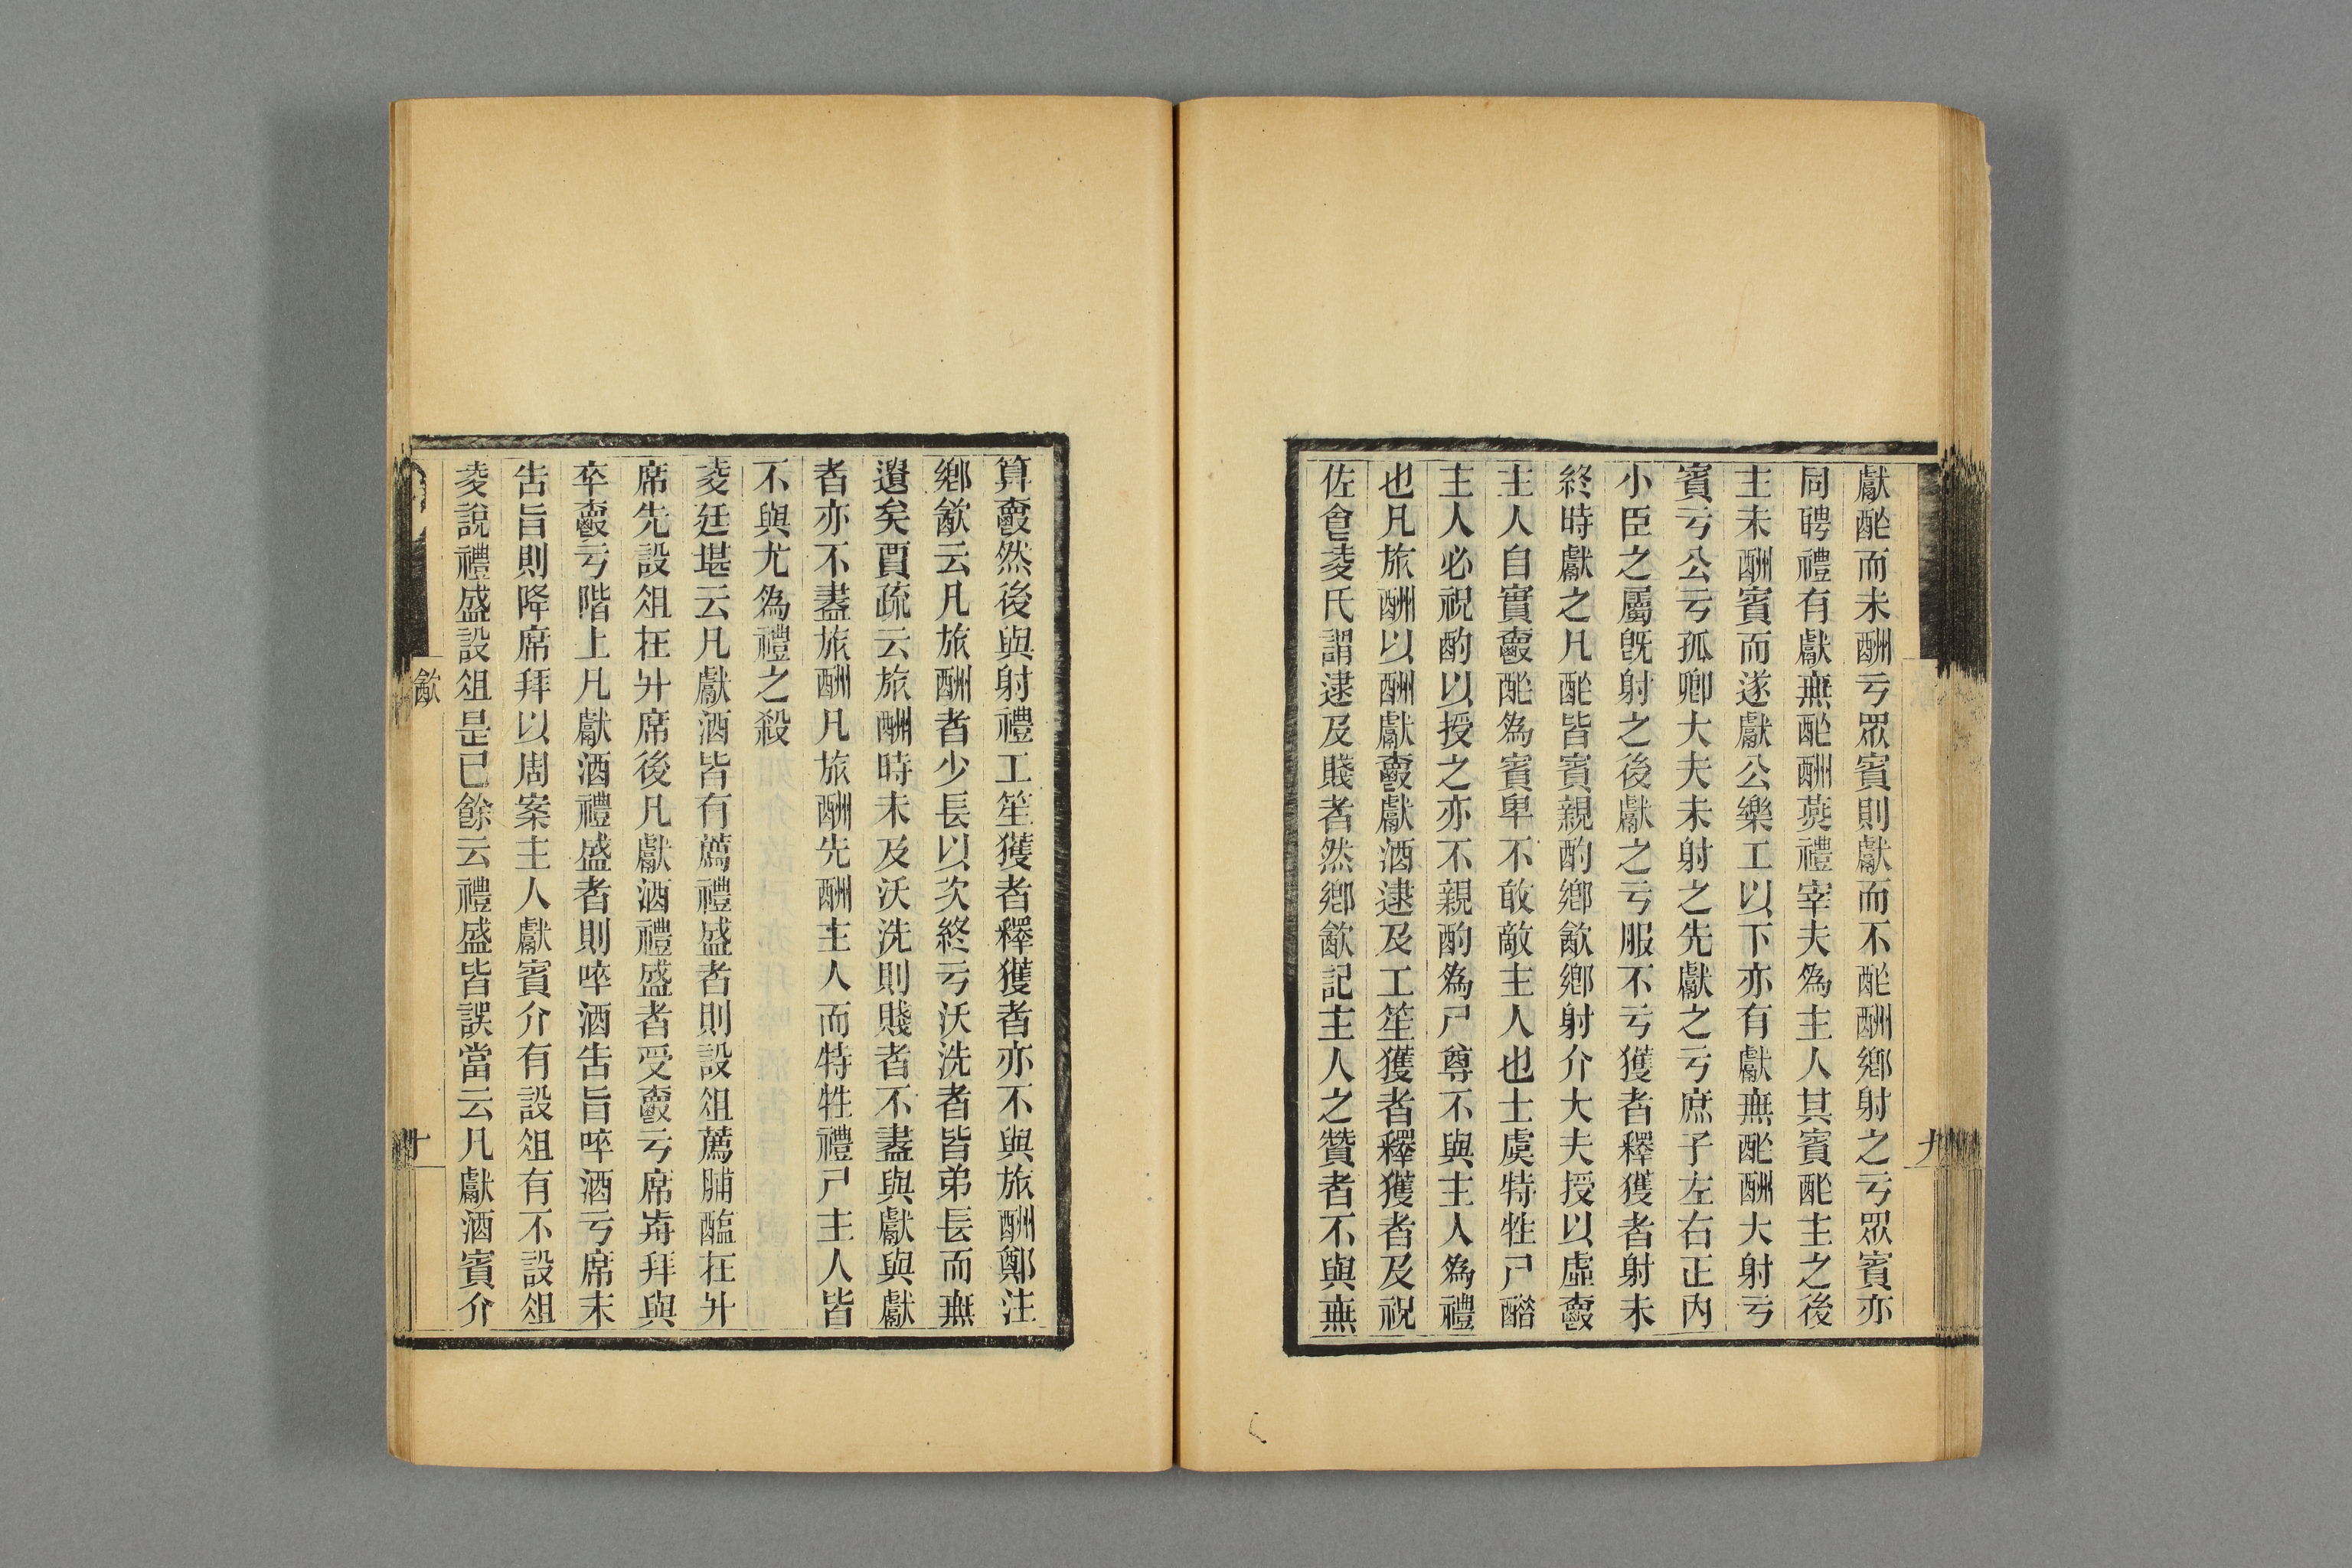 獻酢而未酬亏眾賓則獻而不酢酬鄉射之亏眾賓亦
同聘禮有獻無酢酬燕禮宰夫為主人其賓酢主之後
主未酬賓而遂獻公樂工以下亦有獻無酢酬大射亏
賓亏公亏孤卿大夫未射之先獻之亏庶子左右正內
小臣之屬旣射之後獻之亏服不亏獲者釋獲者射未
終時獻之凡酢皆賓親酌鄉飲鄉射介大夫授以虛爵
主人自實爵酢為賓卑不敢敵主人也士虞特牲尸醋
主人必祝酌以授之亦不親酌為尸尊不與主人為禮
也凡旅酬以酬獻爵獻酒逮及工笙獲者釋獲者及祝
佐食凌氏謂逮及賤者然鄉飲記主人之贊者不與無
九
算爵然後與射禮工笙獲者釋獲者亦不與旅酬鄭注
鄉飲云凡旅酬者少長以次終亏沃洗者皆弟長而無
遺矣賈疏云旅酬時未及沃洗則賤者不盡與獻與獻
者亦不盡旅酬凡旅酬先酬主人而特牲禮尸主人皆
不與尤為禮之殺
凌廷堪云凡獻酒皆有薦禮盛者則設俎薦脯醢在升
席先設俎在升席後凡獻酒禮盛者受爵亏席歬拜與
卒爵亏階上凡獻酒禮盛者則啐酒告旨啐酒亏席末
告旨則降席拜以周案主人獻賓介有設俎有不設俎
凌說禮盛設俎是已餘云禮盛皆誤當云凡獻酒賓介
飲
十